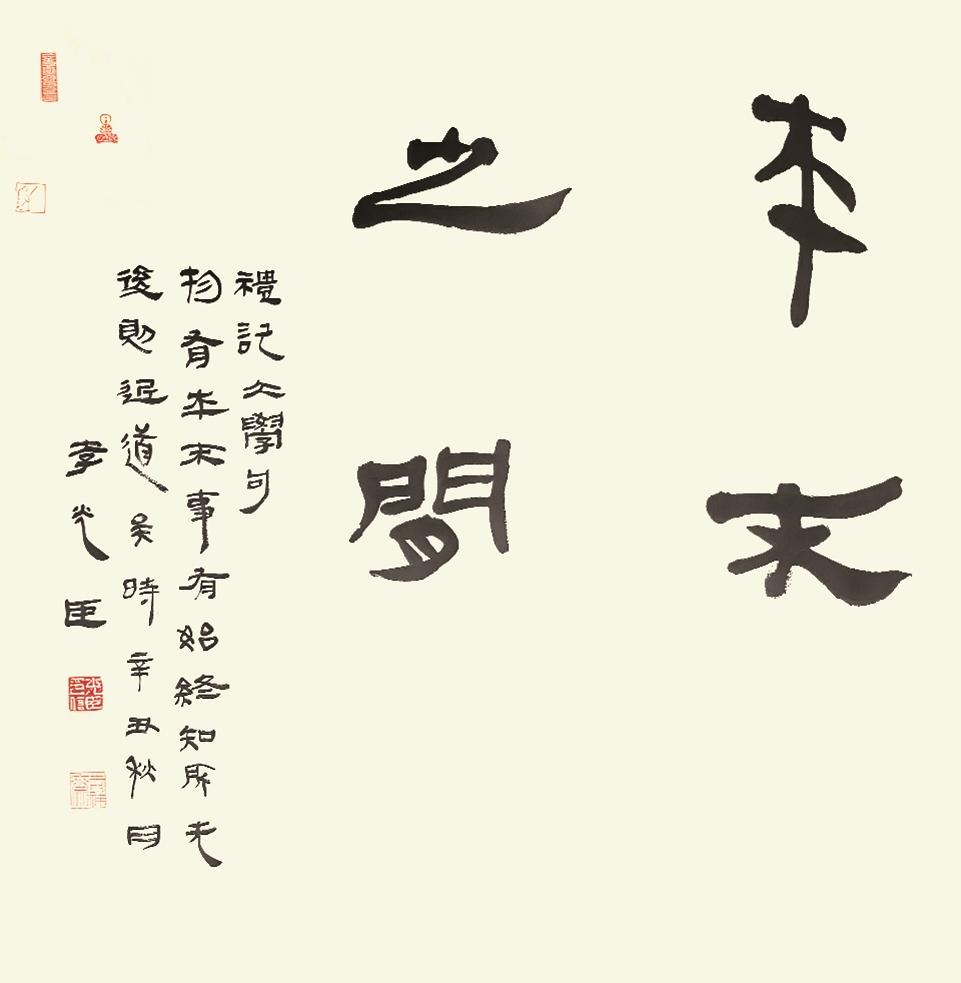 本末
之間
禮記大學句
物有本末事有始終知所先
後則近道矣時辛丑秋月
光臣